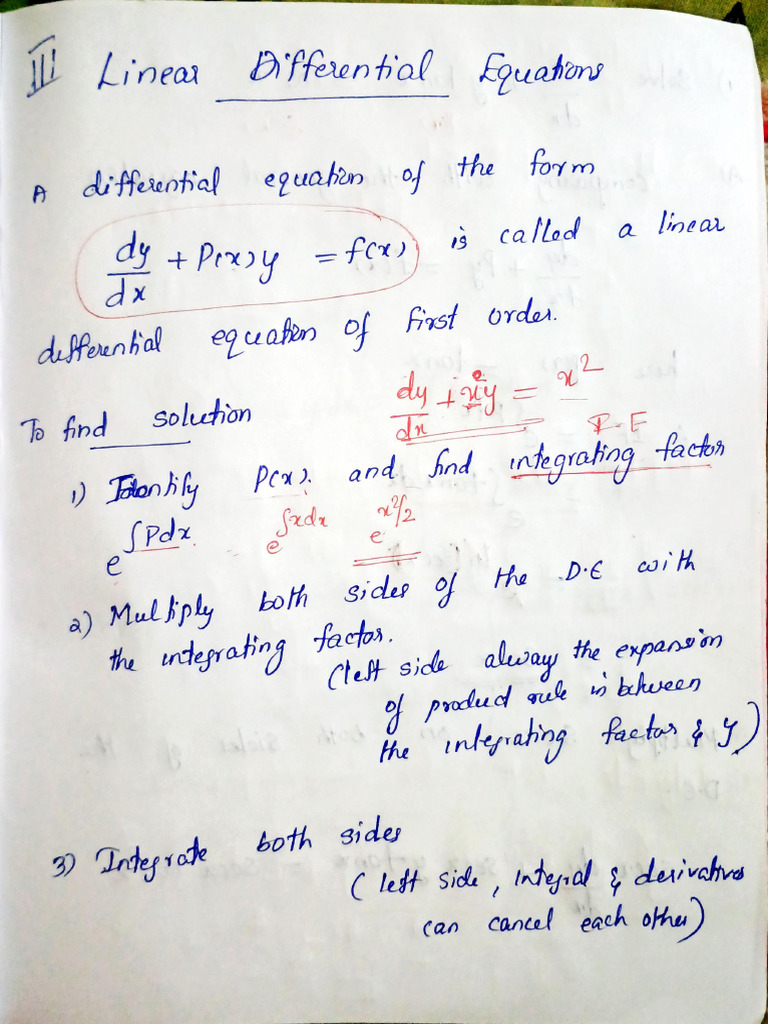 III Linear Differential Equations
A differential equation of the form
dy/dx + P(x)y = f(x) is called a linear
differential equation of first order.
dy/dx + xy = x²
To find solution
I.F
1) Identify P(x). and find integrating factor
e^∫Pdx e^∫xdx e^x²/2
2) Multiply both sides of the D.E with
the integrating factor.
(left side always the expansion
of product rule is between
the integrating factor & y)
3) Integrate both sides
(left side, integral & derivatives
can cancel each other)